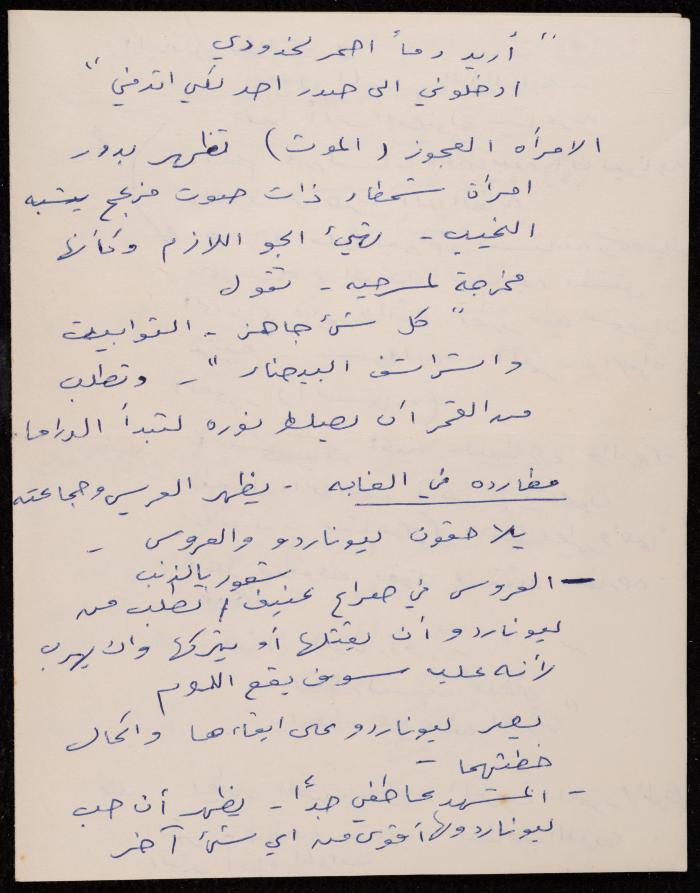 " أريد دماً احمر لخدودي
ادخلوني الى صدر احد لكي اتدفئ "
الامرأه العجوز (الموت) تظهر بدور
امرأة شمطاء ذات صوت مزعج يشبه
النحيب - تهيئ الجو اللازم وكأنها
مخرجة لمسرحيه - تقول
" كل شئ جاهز - التوابيت
والشراشف البيضاء " - وتطلب
من القمر أن يسلط نوره لتبدأ الدراما
مطارده في الغابه - يظهر العريس وجماعته
يلاحقون ليوناردو والعروس -
شعور بالذنب
- العروس في صراع عنيف / تطلب من
ليوناردو أن يقتلها أو يتركها وان يهرب
لأنه عليه سوف يقع اللوم
يصر ليوناردو على ابقاءها واكمال
خطتهما -
- المشهد عاطفي جداً - يظهر أن حب
ليوناردو لها أقوى من اي شئ آخر